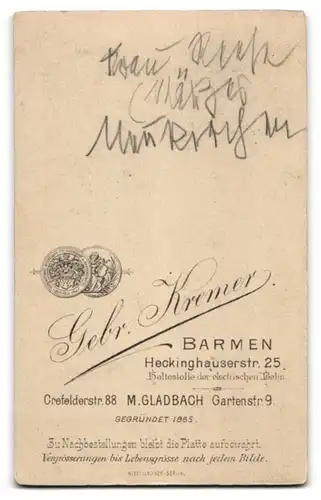 Frau
Neukirchen
Gebr. Kremer.
BARMEN
Heckinghauserstr. 25.
Haltestelle der electrischen Bahn.
Crefelderstr. 88 M. GLADBACH Gartenstr. 9.
GEGRÜNDET 1885.
Zu Nachbestellungen bleibt die Platte aufbewahrt.
Vergrösserungen bis Lebensgrösse nach jedem Bilde.